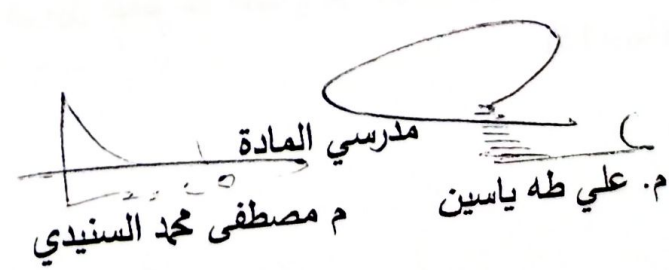 مدرسي المادة
م. علي طه ياسين
م مصطفى محمد السنيدي